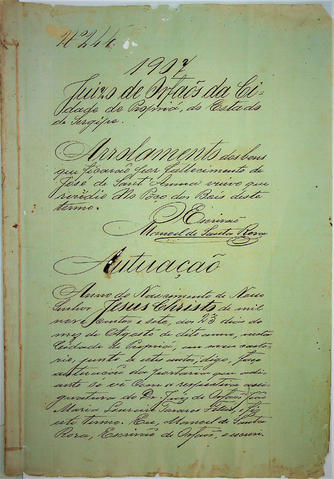 Nº 246
1907
Juizo de Orfãos da Ci-
dade de Propriá, do Estado
de Sergipe.
Arrolamento dos bens
que ficarão por fallecimento de
José de Sant'Anna viuvo que
rezidio No Poço dos Bois deste
termo.
O Escrivão
Manoel de Santa Rosa
Autuação
Anno do Nascimento de Nosso
Senhor Jesus Christo de mil
nove centos e sete, aos 23 dias do
mez de Agosto do dito anno, nesta
Cidade de Propriá, em meu carto-
rio, junto a estes autos, digo, faço
autuação da portaria que adi-
ante se vê com a respectiva assi-
gnatura do Dr. Juiz de Orfãos José
Maria Loureiro Tavares Filho, e fiz
este termo. Eu, Manoel de Santa
Rosa, Escrivão de Orfãos, o escrevi.